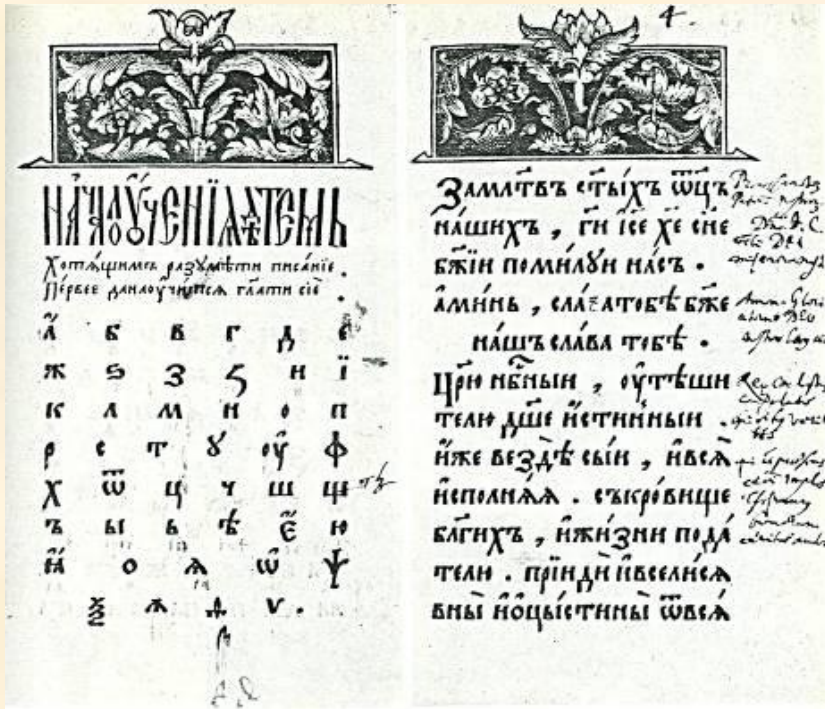 НАЧАЛО ОУЧЕНЇѦ ДѢТЕМЬ
Хотѧ́щимъ разꙋмѣ́ти писа́нїе .
Первее данаоу҆чи́тсѧ гл҃ати сїѐ .
а҆ б в г д є҆
ж ѕ з ꙁ и ї
к л м н о п
р с т ꙋ оу҆ ф
х ѿ ц ч ш щ
ъ ы ь ѣ є҆ ю
ꙗ҆ о ѧ ѡ҆ ѱ
ѯ ѫ ѳ ѵ .
4.
Замл҃твъ ст҃ы́хъ ѿц҃ъ
на́шихъ , гн҃и і҆се хе҃ сн҃е
бж҃їи поми́лꙋи на́съ .
а҆ми́нь , сла́ватобѣ̀ бж҃е
на́шъ сла́ва тобѣ̀ .
Цр҃ю нб҃ныи , оу҆тѣ́ши
телю дш҃е и҆́стинныи .
и҆́же вездѣ̀ сы́и , и҆всѧ̀
и҆сполнѧ́ѧ . съкро́вище
бл҃гихъ , и҆жи́зни пода́
телю . прїидѝ и҆всели́сѧ
вны̀ и҆ѡ҆цы́стины̀ ѿвсѧ́